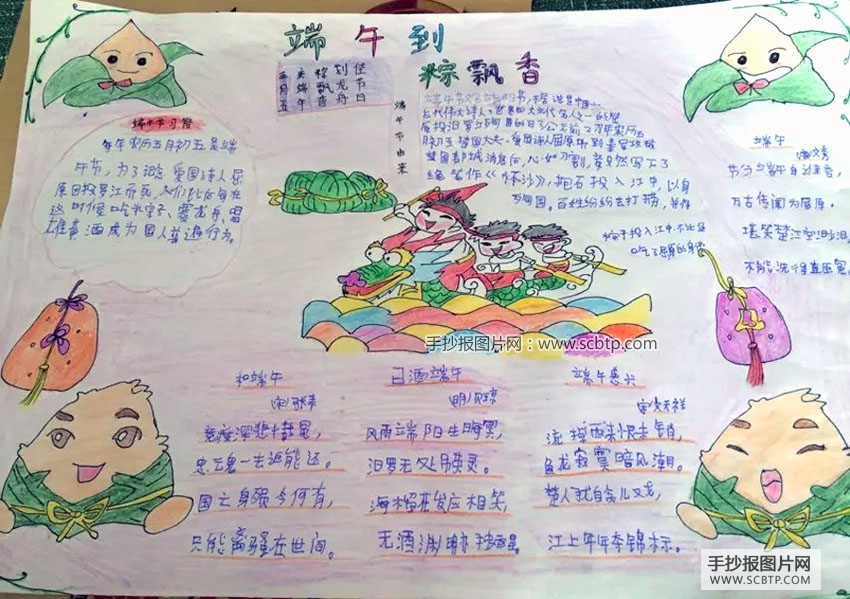 端午到
粽飘香
五月五
庆端午
粽飘香
划龙舟
佳节日
端午节由来
端午节习俗
每年农历五月初五是端
午节，为了纪念爱国诗人屈
原因投罗江而死，人们
这时候吃米宗子，赛龙舟，喝
雄黄酒成为国人普遍行为。
古代伟大诗人、世界四大文化名人之一的屈
月初五
绝笔作《怀沙》，抱石投入江中，以身
百姓纷纷去打捞，并将
粽子投入江中
吃了屈原的身体
端午
唐文秀
节分端午自谁言，
万古传闻为屈原。
堪笑楚江空渺渺，
不能洗得直臣冤
手抄报图片网：www.scbtp.com
和端午
宋 张耒
竞度深悲千载冤，
忠魂一去讵能还。
国亡身殒今何有，
只能离骚在世间。
日酒端午
明 贝琼
风雨端阳生晦冥，
汨罗无处吊英灵。
海榴花发应相笑，
无酒渊明
端午感兴
宋 文天祥
流棹西来恨未销，
鱼龙寂寞暗风潮。
楚人犹自
江上年年夺锦标。
手抄报图片网
WWW.SCBTP.COM